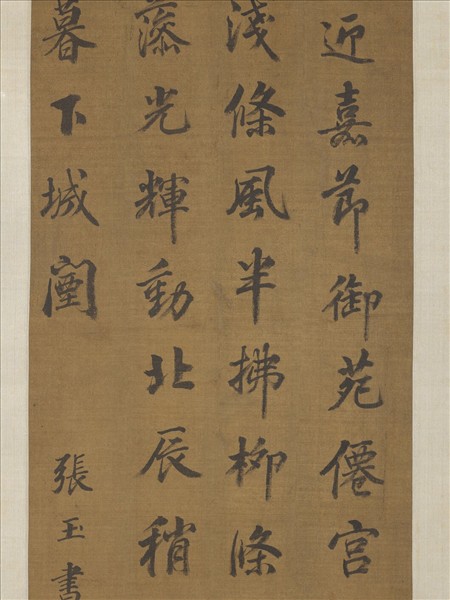 近嘉節御苑僊宮
淺條風半拂柳條
藻光輝動北辰稍
暮下城闉
張玉書